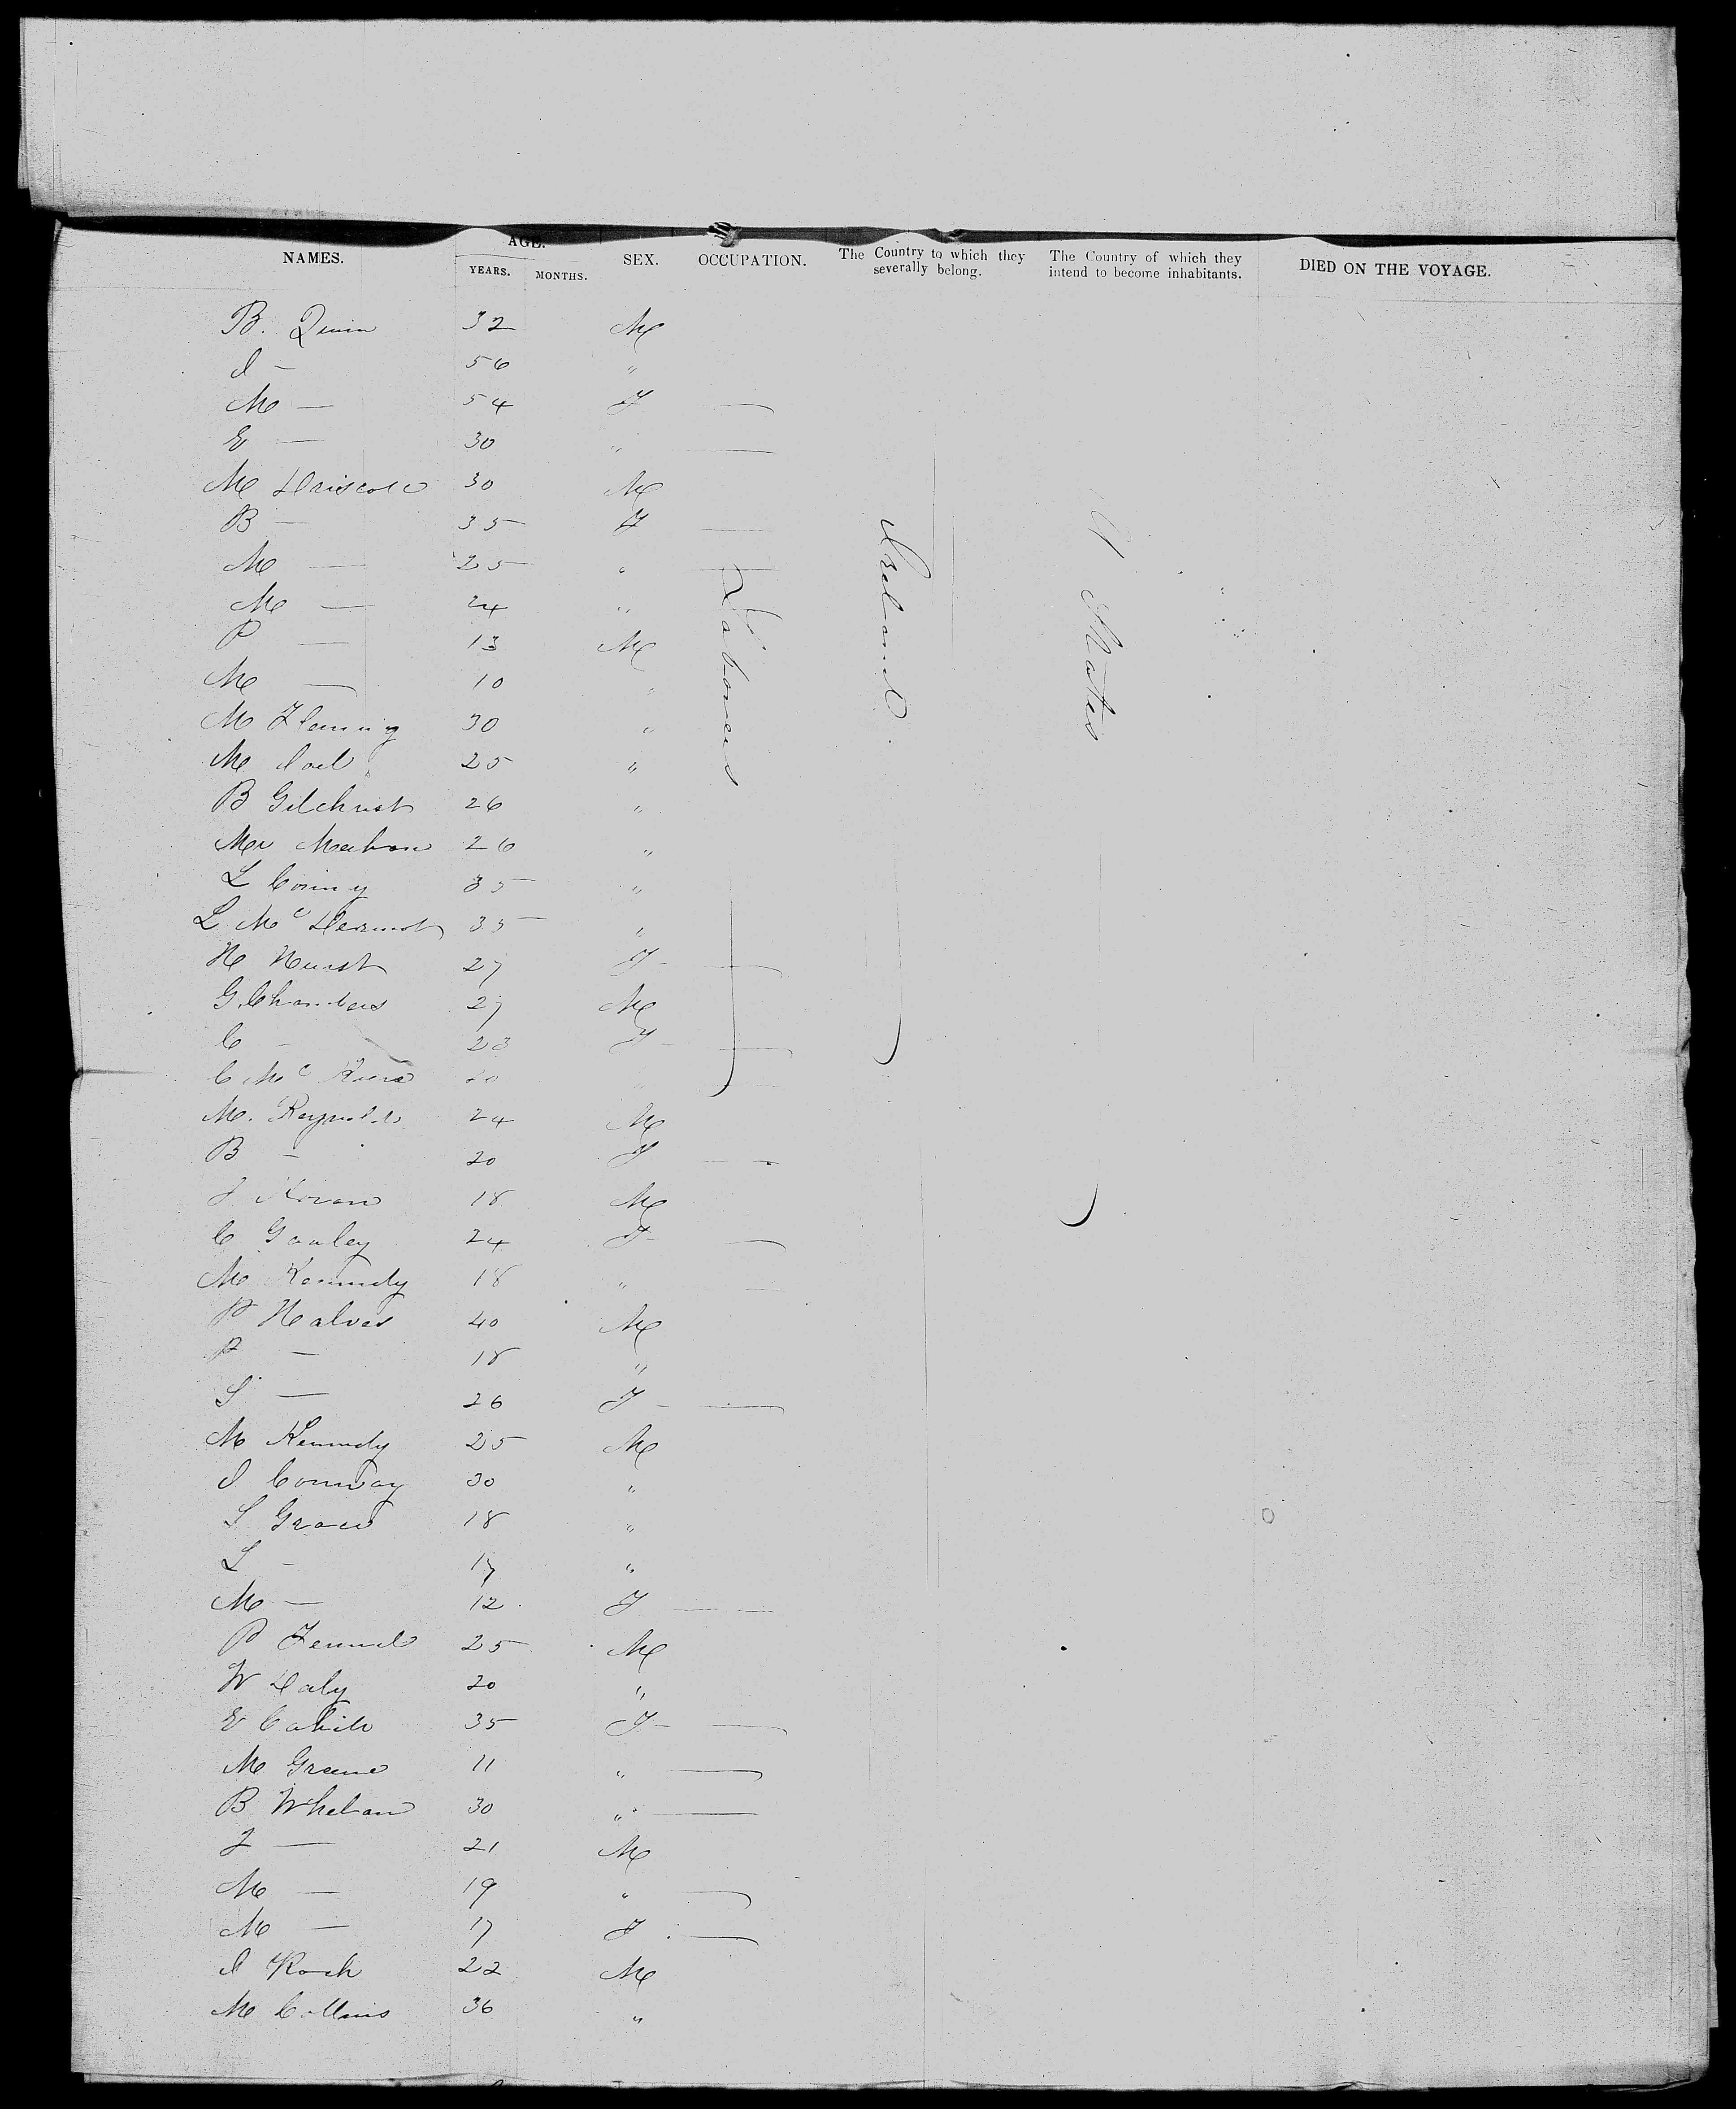 NAMES. AGE. SEX. OCCUPATION. The Country to which they severally belong. The Country of which they intend to become inhabitants. DIED ON THE VOYAGE.
YEARS. MONTHS.
B. Quinn 32 M
J — 56 "
M — 54 F —
E — 30 " —
M Driscoll 30 M
B — 35 F —
M — 25 " —
M — 24 "
P — 13 M
M — 10 "
M Fleming 30 "
M 25 "
B Gilchrist 26 "
Mr Meehan 26 "
L 35 "
L McDermot 35 "
H Hurst 27 F —
G Chambers 27 M
C — 23 F —
C Mc 20 " —
M. Reynolds 24 M
B — 20 F —
J 18 M
C Ganley 24 F —
M Kennedy 18 " —
P 40 M
P — 18 "
S — 26 F —
M Kennedy 25 M
J Connoay 30 "
S Grace 18 "
L — 17 "
M — 12 F —
P Fennel 25 M
W Daly 20 "
E Cahill 35 F —
M Greene 11 " —
B Whelan 30 " —
J — 21 M
M — 19 " —
M — 17 F —
J Roch 22 M
M Collins 36 "
Labourers
Ireland.
U States